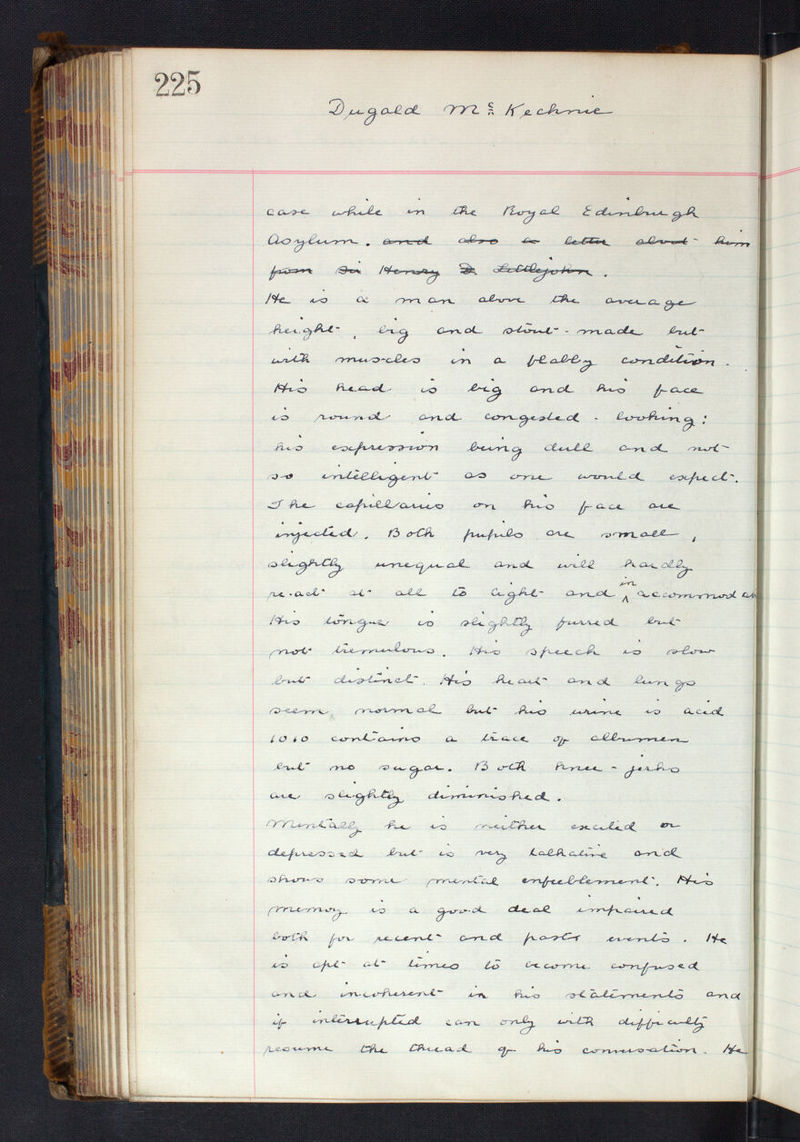 225
Dugald Mc Kechnie
case while in the Royal Edinburgh
Asylum. and also a letter about him
from Sir Henry D. Littlejohn.
He is a man above the average
height, big and stout-made but
with muscles in a flabby condition.
His head is big and his face
is round and congested-looking:
his expression being dull and not
so intelligent as one would expect.
The capillaries on his face are
injected. Both pupils are small,
slightly unequal and will hardly
re-act at all to light and in accommodat
His tongue is slightly furred but
not tremulous. His speech is slow
but distinct. His heart and lungs
seem normal but his urine is acid
1010 contains a trace of albumen
but no sugar. Both knee-jerks
are slightly diminished.
Mentally he is neither excited or
depressed but is very talkative and
shows some mental enfeeblement. His
memory is a good deal impaired
both for recent and past events. He
is apt at times to become confused
and incoherent in his statements and
if interrupted can only with difficulty
resume the thread of his conversation. He